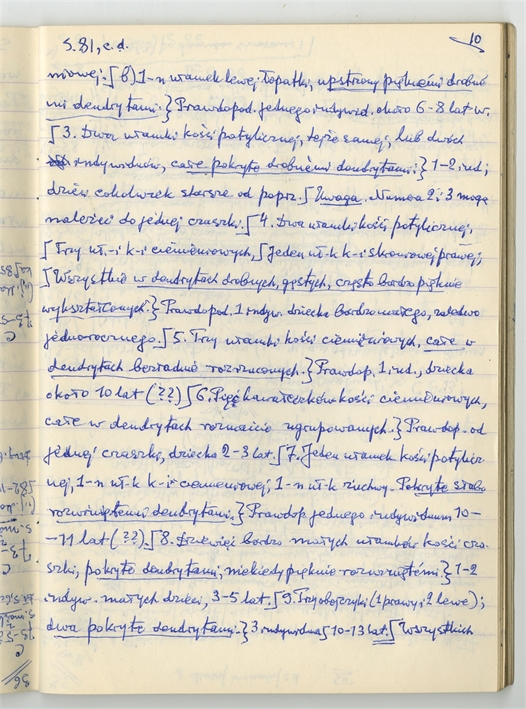 10
S. 81, c.d.
niowej.⌠6) 1-n ułamek lewej łopatki, upstrzony pięknemi drobne
mi dendrytami.} Prawdopod. jednego indywid. około 6-8 lat w.
⌠3. Dwa ułamki kości potylicznej, tejże samej, lub dwóch
indywiduów, całe pokryte drobnemi dendrytami.} 1-2 ind;
dzieci cokolwiek starsze od poprz.⌠Uwaga. Numera 2 i 3 mogą
należeć do jednej czaszki.⌠4. Dwa ułamki kości potylicznej,
⌠Trzy uł.-i k-i ciemieniowych,⌠Jeden uł-k k-i skroniowej prawej;
⌠Wszystkie w dendrytach drobnych, gęstych, często bardzo pięknie
wykształconych.} Prawdopod. 1 indyw. dziecka bardzo małego, zaledwo
jednorocznego.⌠5. Trzy ułamki kości ciemieniowych, całe w
dendrytach bezładnie rozrzuconych.} Prawdop. 1 ind., dziecka
około 10 lat (??)⌠6. Pięć kawałeczków kości ciemieniowych,
całe w dendrytach rozmaicie ugrupowanych.} Prawdop. od
jednej czaszki, dziecka 2-3 lat.⌠7. Jeden ułamek kości potylicz
nej, 1-n uł-k k-i ciemieniowej, 1-n uł-k żuchwy. Pokryte słabo
rozwiniętemi dendrytami.} Prawdop. jednego indywiduum 10-
-11 lat (??).⌠8. Dziewięć bardzo małych ułamków kości cza-
szki, pokryte dendrytami, niekiedy pięknie rozwiniętemi.} 1-2
indyw. małych dzieci, 3-5 lat.⌠9. Trzy obojczyki (1 prawy i 2 lewe);
dwa pokryte dendrytami.} 3 indywidua⌠10-13 lat.⌠Wszystkich